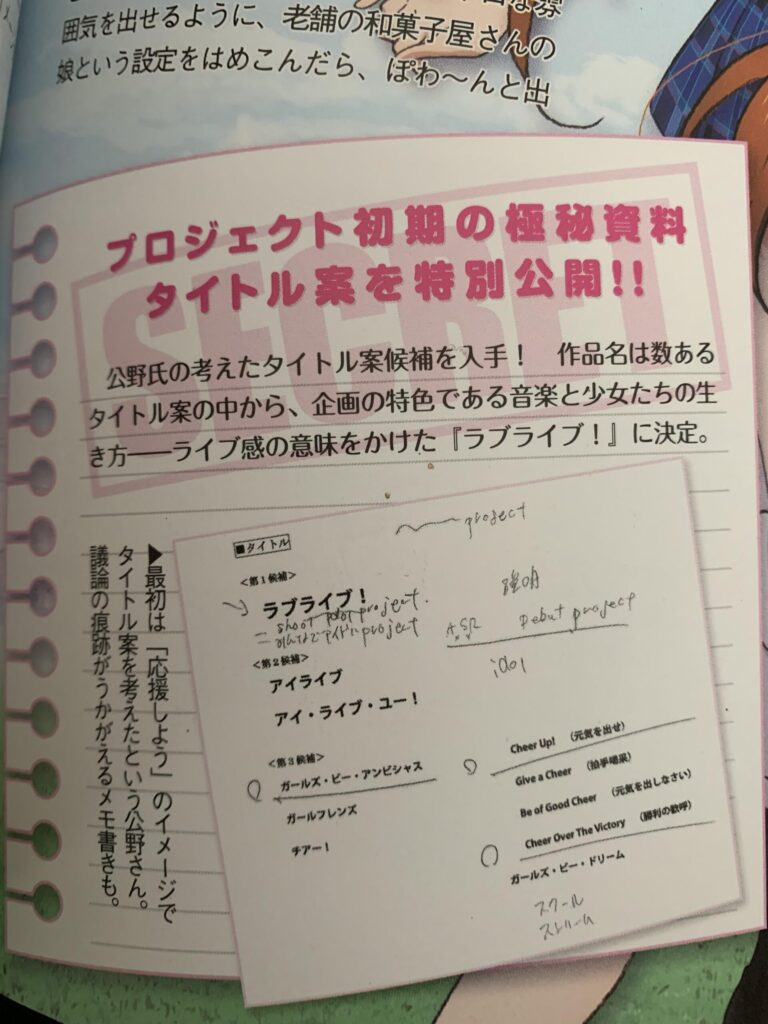 囲気を出せるように、老舗の和菓子屋さんの
娘という設定をはめこんだら、ぽわ〜んと出
SECRET
プロジェクト初期の極秘資料
タイトル案を特別公開!!
公野氏の考えたタイトル案候補を入手！　作品名は数ある
タイトル案の中から、企画の特色である音楽と少女たちの生
き方――ライブ感の意味をかけた『ラブライブ！』に決定。
▶最初は「応援しよう」のイメージで
タイトル案を考えたという公野さん。
議論の痕跡がうかがえるメモ書きも。
project
■タイトル
<第１候補>
ラブライブ！
project.
project
Debut project
idol
<第２候補>
アイライブ
アイ・ライブ・ユー！
<第３候補>
ガールズ・ビー・アンビシャス
ガールフレンズ
チアー！
Cheer Up!　（元気を出せ）
Give a Cheer　（拍手喝采）
Be of Good Cheer　（元気を出しなさい）
Cheer Over The Victory　（勝利の歓呼）
ガールズ・ビー・ドリーム
スクール
ストリーム